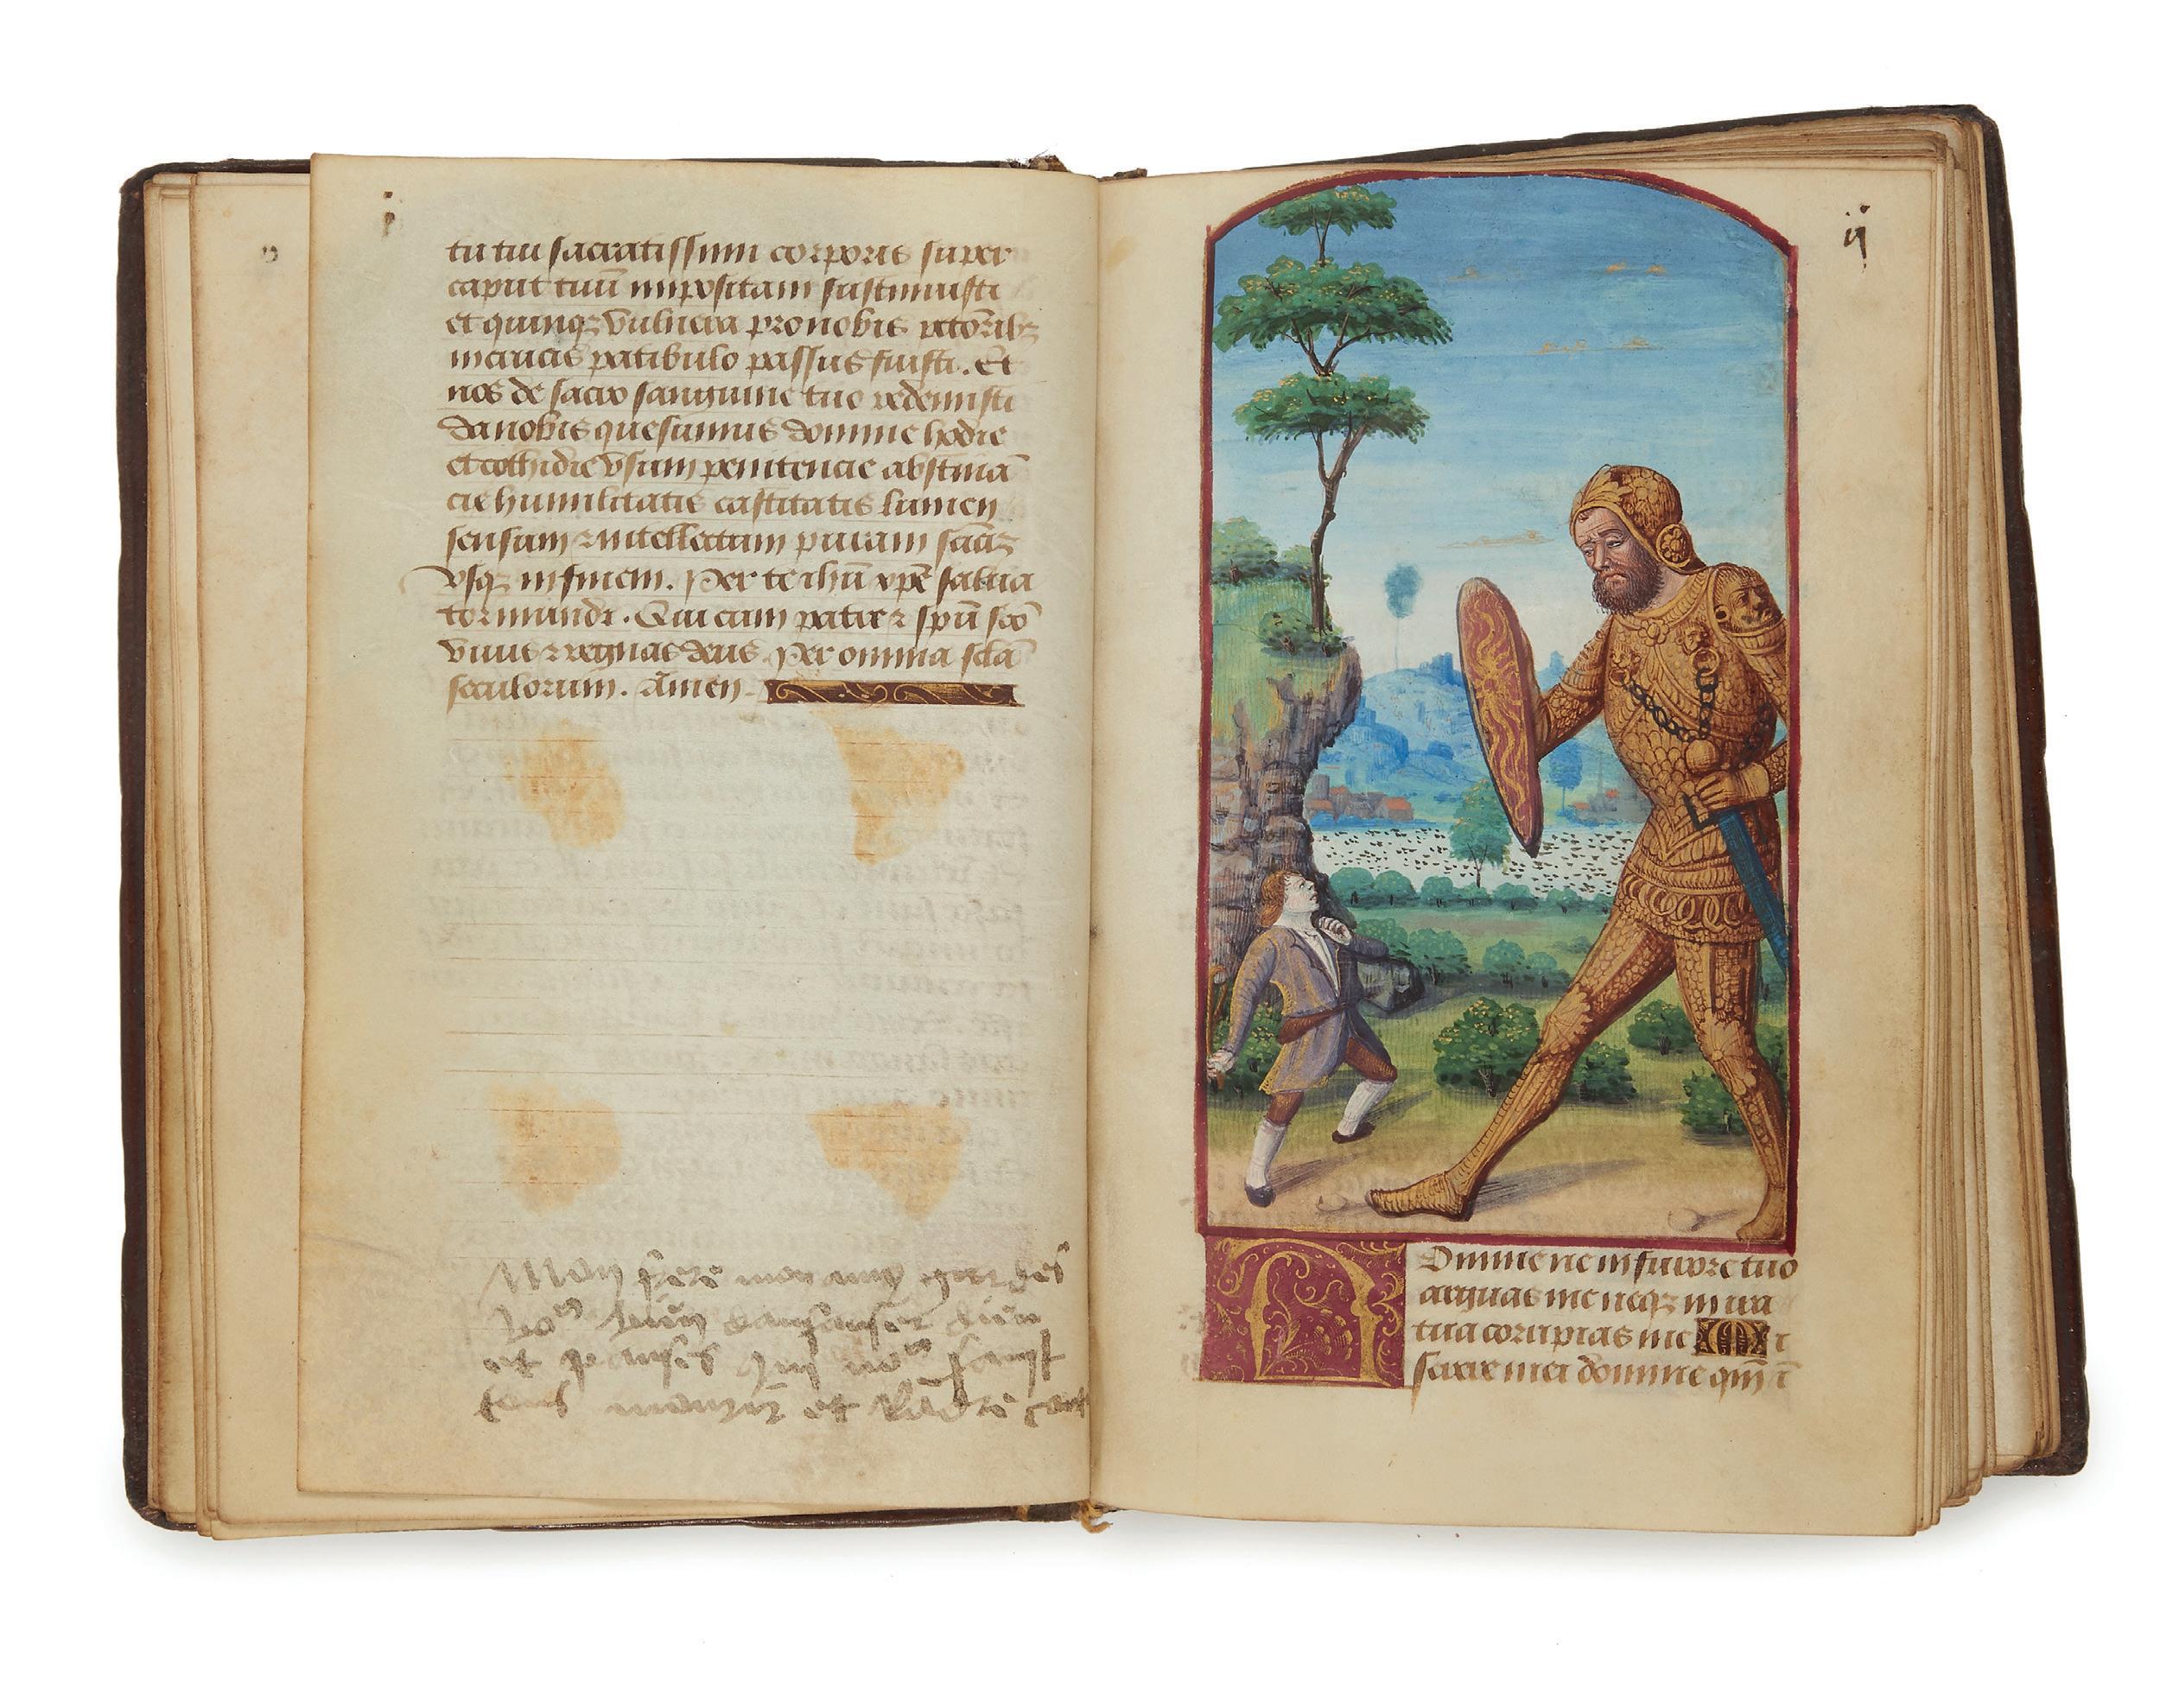 i
tu tui sacratissimi corporis super
caput tuū impositam sustinuisti
et quinqz vulnera pro nobis pctōribz
in crucis patibulo passus fuisti. Et
nos de sacro sanguine tuo redemisti
da nobis quesumus domine hodie
et cothidie vsum penitencie abstinā
cie humilitatis castitatis lumen
sensum ⁊ intellectum puram sciāz
vsqz in finem. Per te ihū xpē salua
tor mundi. Qui cum patre ⁊ spū scō
viuis ⁊ regnas deus. Per omnia sclā
seculorum. Amen
Mon frere mon amy gardes
vo⁹ bien
et qui no⁹ fault
tous mourir et rādre
ij
Domine ne in furore tuo
arguas me neqz in ira
tua corripias me Mi
serere mei domine qm̄ ī